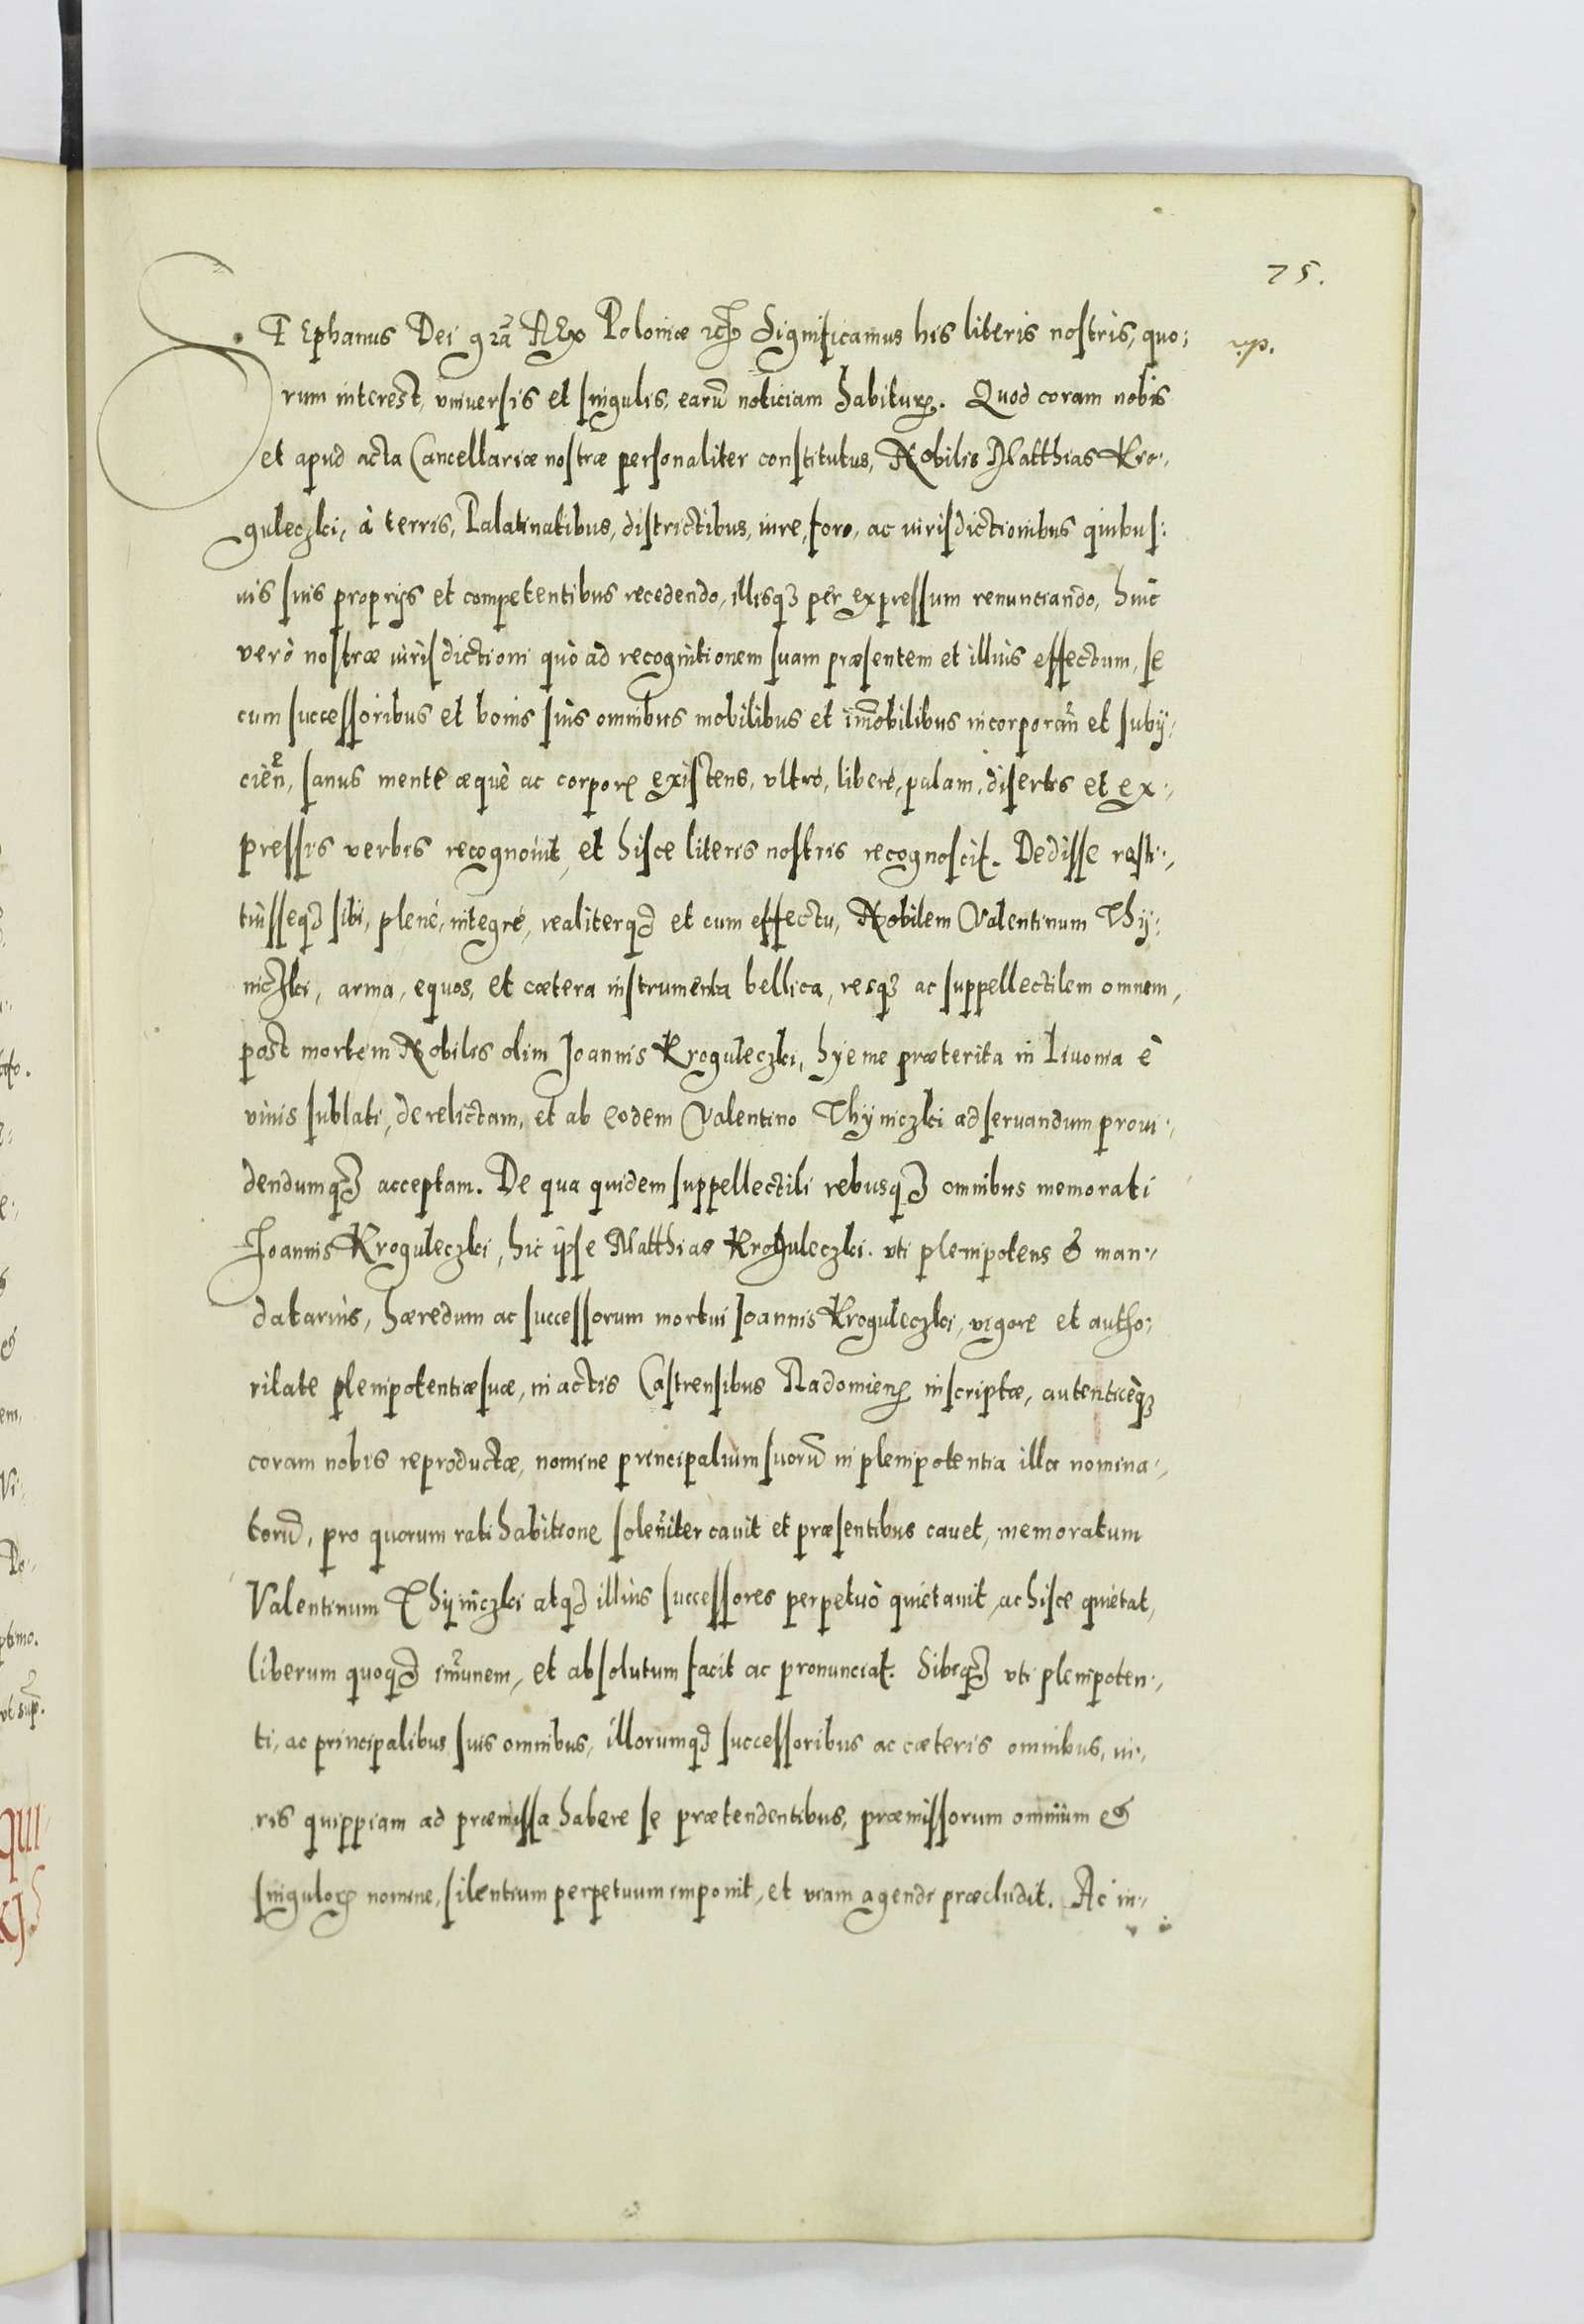 75.
STEphanus Dei gra͂ REx Poloniæ etc. Significamus his literis nostris, quo:
rum interest, vniuersis et singulis, earu͂ noticiam habituꝝ. Quod coram nobis
et apud acta Cancellariæ nostræ personaliter constitutus, Nobilis Matthias Kro:
guleczki, à terris, Palatinatibus, districtibus, iure, foro, ac iurisdictionibus quibus:
uis suis proprijs et competentibus recedendo, illisqꝫ per expressum renunciando, huic
verò nostræ iurisdictioni quò ad recognitionem suam præsentem et illius effectum, se
cum successoribus et bonis suis omnibus mobilibus et im͂obilibus incorporan͂ et subij:
cien͂, sanus mente æquè ac corpore existens, vltrò, liberè, palam, disertis et ex:
pressis verbis recognouit, et hisce literis nostris recognoscit. Dedisse resti:
tuisseqꝫ sibi, plenè, integrè, realiterqꝫ et cum effectu, Nobilem Valentinum Thy:
niczki, arma, equos, et cætera instrumenta bellica, resqꝫ ac suppellectilem omnem,
post mortem Nobilis olim Joannis Kroguleczki, hyeme præterita in Liuonia è
viuis sublati, derelictam, et ab eodem Valentino Thyniczki adseruandum proui:
dendumqꝫ acceptam. De qua quidem suppellectili rebusqꝫ omnibus memorati
Joannis Kroguleczki, hic ipse Matthias Kroguleczki. vti plenipotens & man:
datarius, hæredum ac successorum mortui Joannis Kroguleczki, vigore et autho:
ritate plenipotentiæ suæ, in actis Castrensibus Radomien͂ inscriptæ, autenticèqꝫ
coram nobis reproductæ, nomine principalium suoru͂ in plenipotentia illa nomina:
toru͂, pro quorum ratihabitione solen͂iter cauit et præsentibus cauet, memoratum
Valentinum Thyniczki atqꝫ illius successores perpetuò quietauit, ac hisce quietat,
liberum quoqꝫ im͂unem, et absolutum facit ac pronunciat. Sibiqꝫ vti plenipoten:
ti, ac principalibus suis omnibus, illorumqꝫ successoribus ac cæteris omnibus, iu:
ris quippiam ad præmissa habere se prætendentibus, præmissorum omnium &
singuloꝝ nomine, silentium perpetuum imponit, et viam agendi præcludit. Ac in: